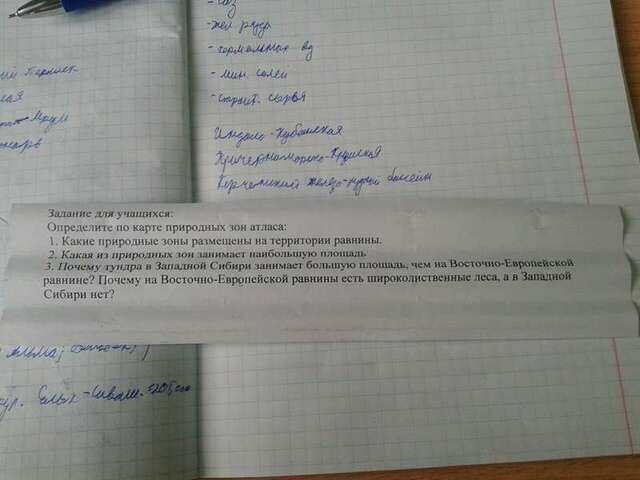 газ
-жел руды
-термальных вд
-мин. солей
-строит. сырья
Индоло-Кубанская
Причерноморско-Крымская
Керченский железо-рудный басейн
Задание для учащихся:
Определите по карте природных зон атласа:
1. Какие природные зоны размещены на территории равнины.
2. Какая из природных зон занимает наибольшую площадь
3. Почему тундра в Западной Сибири занимает большую площадь, чем на Восточно-Европейской
равнине? Почему на Восточно-Европейской равнины есть широколиственные леса, а в Западной
Сибири нет?